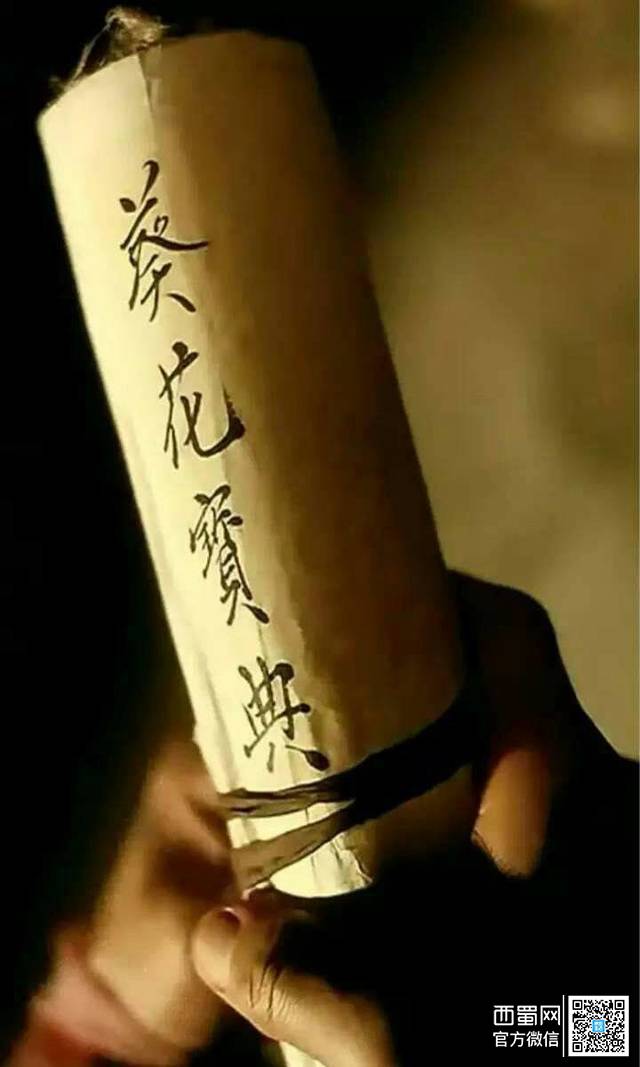 葵花寶典
西蜀网
官方微信